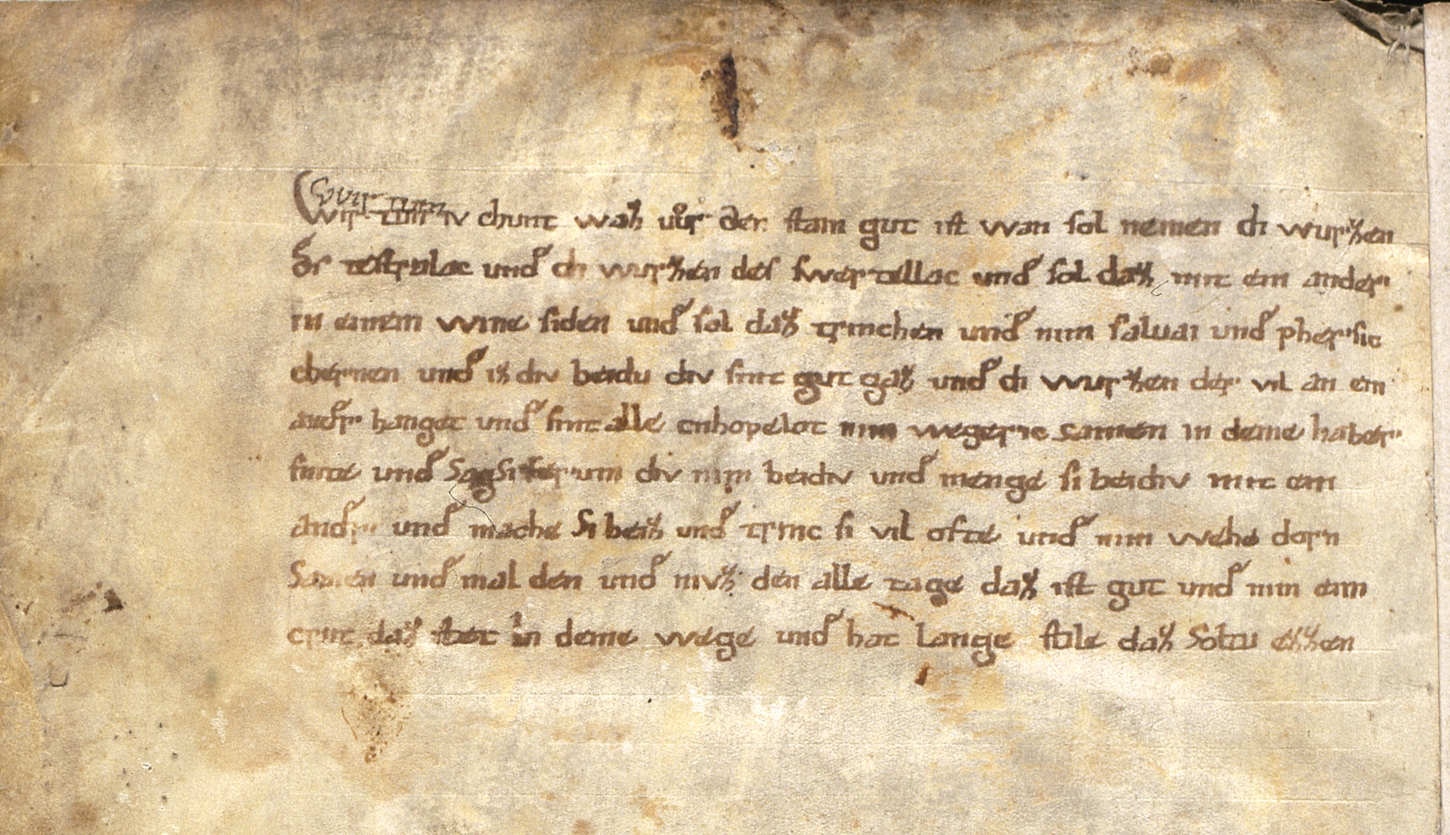 Wir tun iv chunt waȥ vůr den stam gut ist wan sol nemen di wurȥen
der und di wurȥen des swertellac und sol daȥ mit ein ander
in einem wine siden und sol daȥ trinchen und nim saluai und phersic
chernen und iȥ div beidu div sint gut gaȥ und di wurȥen der vil an ein
andr hanget und sint alle nim wegeric samen in deme haber
snite und div nim beidiv und menge si beidiv mit ein
andr und mache si heiȥ und trinc si vil ofte und nim wehe dorn
Samen und mal den und nivȥ den alle tage daȥ ist gut und nim ein
crut daȥ stet in deme wege und hat lange stile daȥ soltu eȥȥen